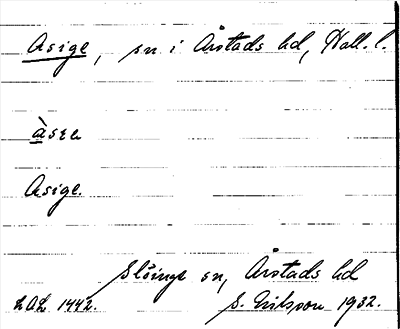 Asige, sn i Årstads hd, Hall. l.
àsɛe
Asige
Slöinge sn, Årstads hd
LAL 1442. S. Erikson 1932.